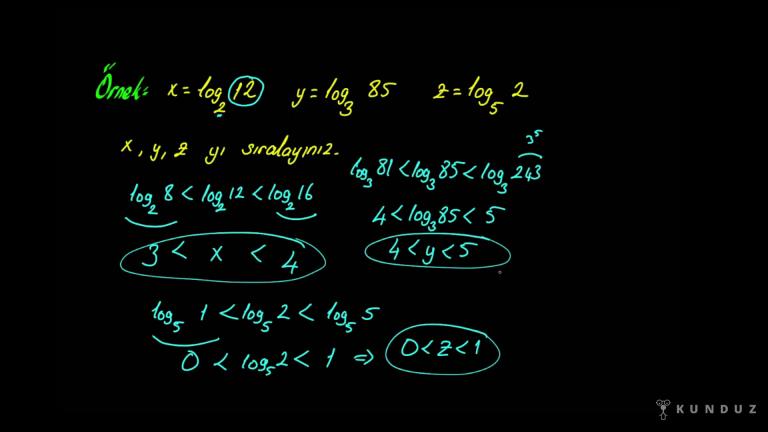 Örnek: x = log₂ 12 y = log₃ 85 z = log₅ 2
x, y, z yi sıralayınız.
log₂ 8 < log₂ 12 < log₂ 16
3 < x < 4
3⁵
log₃ 81 < log₃ 85 < log₃ 243
4 < log₃ 85 < 5
4 < y < 5
log₅ 1 < log₅ 2 < log₅ 5
0 < log₅ 2 < 1 ⇒ 0 < z < 1
KUNDUZ